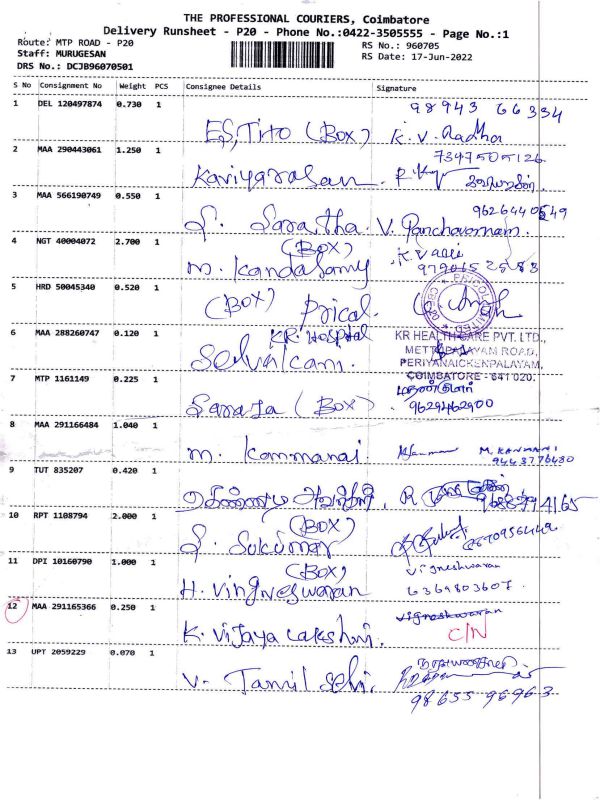 THE PROFESSIONAL COURIERS, Coimbatore
Delivery Runsheet - P20 - Phone No.:0422-3505555 - Page No.:1
Route: MTP ROAD - P20
RS No.: 960705
Staff: MURUGESAN
RS Date: 17-Jun-2022
DRS No.: DCJB96070501
S No Consignment No Weight PCS Consignee Details Signature
1 DEL 120497874 0.730 1
98943 66334
E.S, Tito (Box) K. V. Radha
2 MAA 290443061 1.250 1
7347505126
Kaviyarasan
3 MAA 566190749 0.550 1
S. Saraitha V. Panchavarnam
4 NGT 40004072 2.700 1
(BOX) K. Vaani
m. Kandasamy
5 HRD 50045340 0.520 1
(BOX) Prical
6 MAA 288260747 0.120 1
KR. Hospital
KR HEALTH CARE PVT. LTD.,
Selvakani.
METTUPALAYAM ROAD,
PERIYANAICKENPALAYAM,
COIMBATORE - 641 020.
7 MTP 1161149 0.225 1
Saraja (BOX) 9629462900
8 MAA 291166484 1.040 1
m. Kanmanai M. KANMANI
9443776480
9 TUT 835207 0.420 1
10 RPT 1108794 2.000 1
(BOX)
S. Sukumar
11 DPI 10160790 1.000 1
(BOX) Vigneshwaran
H. Vingneswaran 6369803607.
12 MAA 291165366 0.250 1
Vigneshwaran
K. Vijaya Lakshmi. C/N
13 UPT 2059229 0.070 1
V. Tamil Selvi.
98655 96963